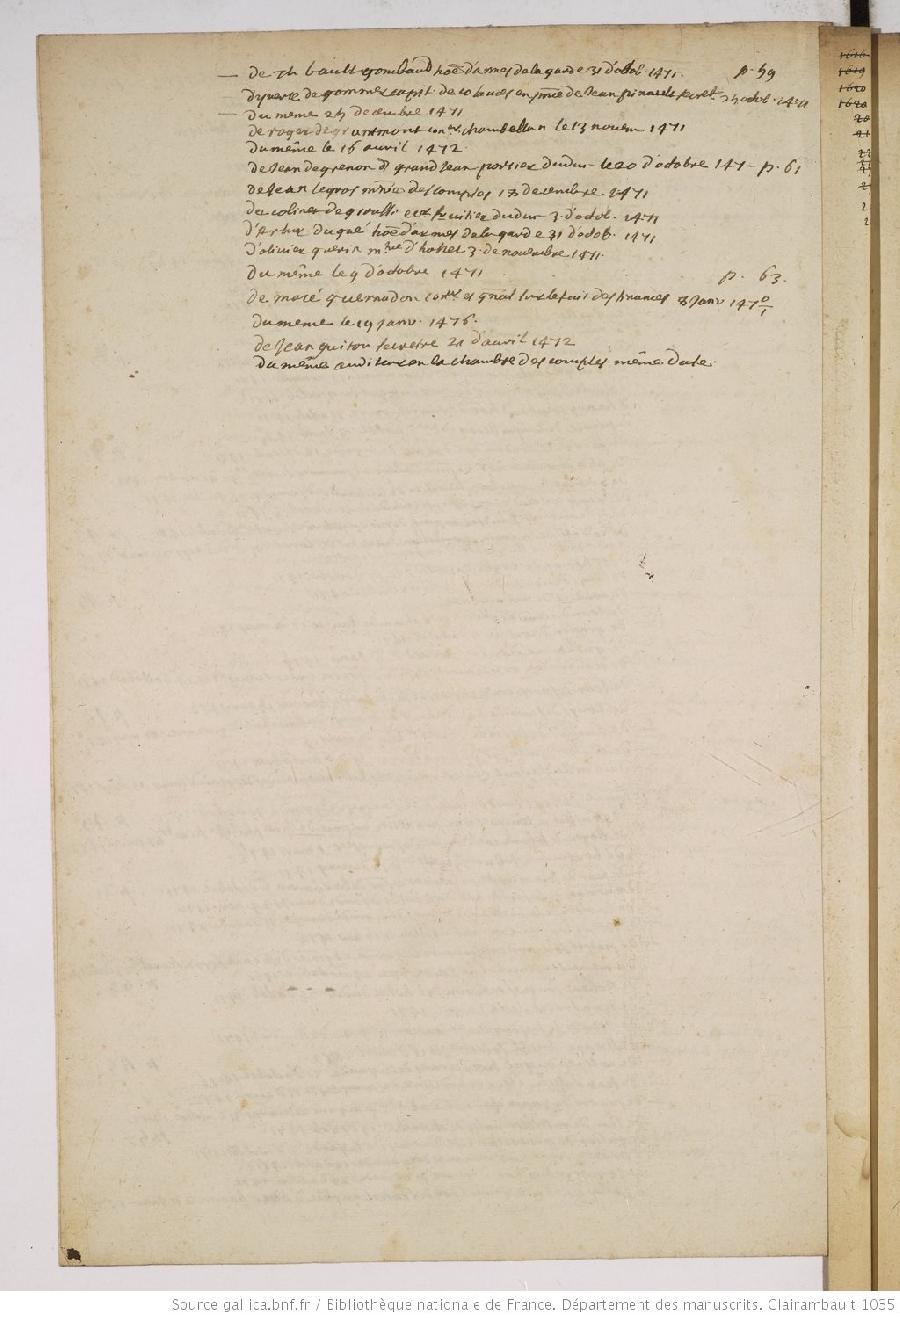 — de Thibault gombaud hoe d'armes de la garde 31 d'octob. 1471. p. 59
d'yvert de pommes capit. de en de Jean secret. 25 octob. 1471
— du meme 24 decembre 1471
de roger de grantmont conser chambellan le 13 novem 1471
du même le 16 avril 1472.
de Jean de grenon d grand Jean portier du duc le 20 d'octobre 147- p. 61
de Jean legros mtre des comptes 17 decembre 1471
de colinet de fruitier du duc 3 d'octob. 1471
d'artur du gué hoe d'armes de la garde 31 d'octob. 1471
d'olivier guerin mtre d'hostel 3 de novembre 1471.
du même le 9 d'octobre 1471 p. 63.
de macé guernadon conser et gnal sur le fait des finances 8 Janv 1470/1
du meme le 19 Janv. 1476.
de Jean guiton secretre 21 d'avril 1472
du même auditeur en la chambre des comptes même date.
1620
20
21
Source gallica.bnf.fr / Bibliothèque nationale de France. Département des manuscrits. Clairambault 1035